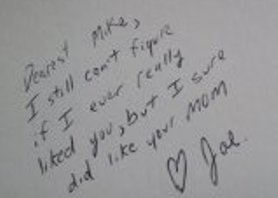 Dearest Mike,
I still can't figure
if I ever really
liked you, but I sure
did like your MOM
♡ Joe.